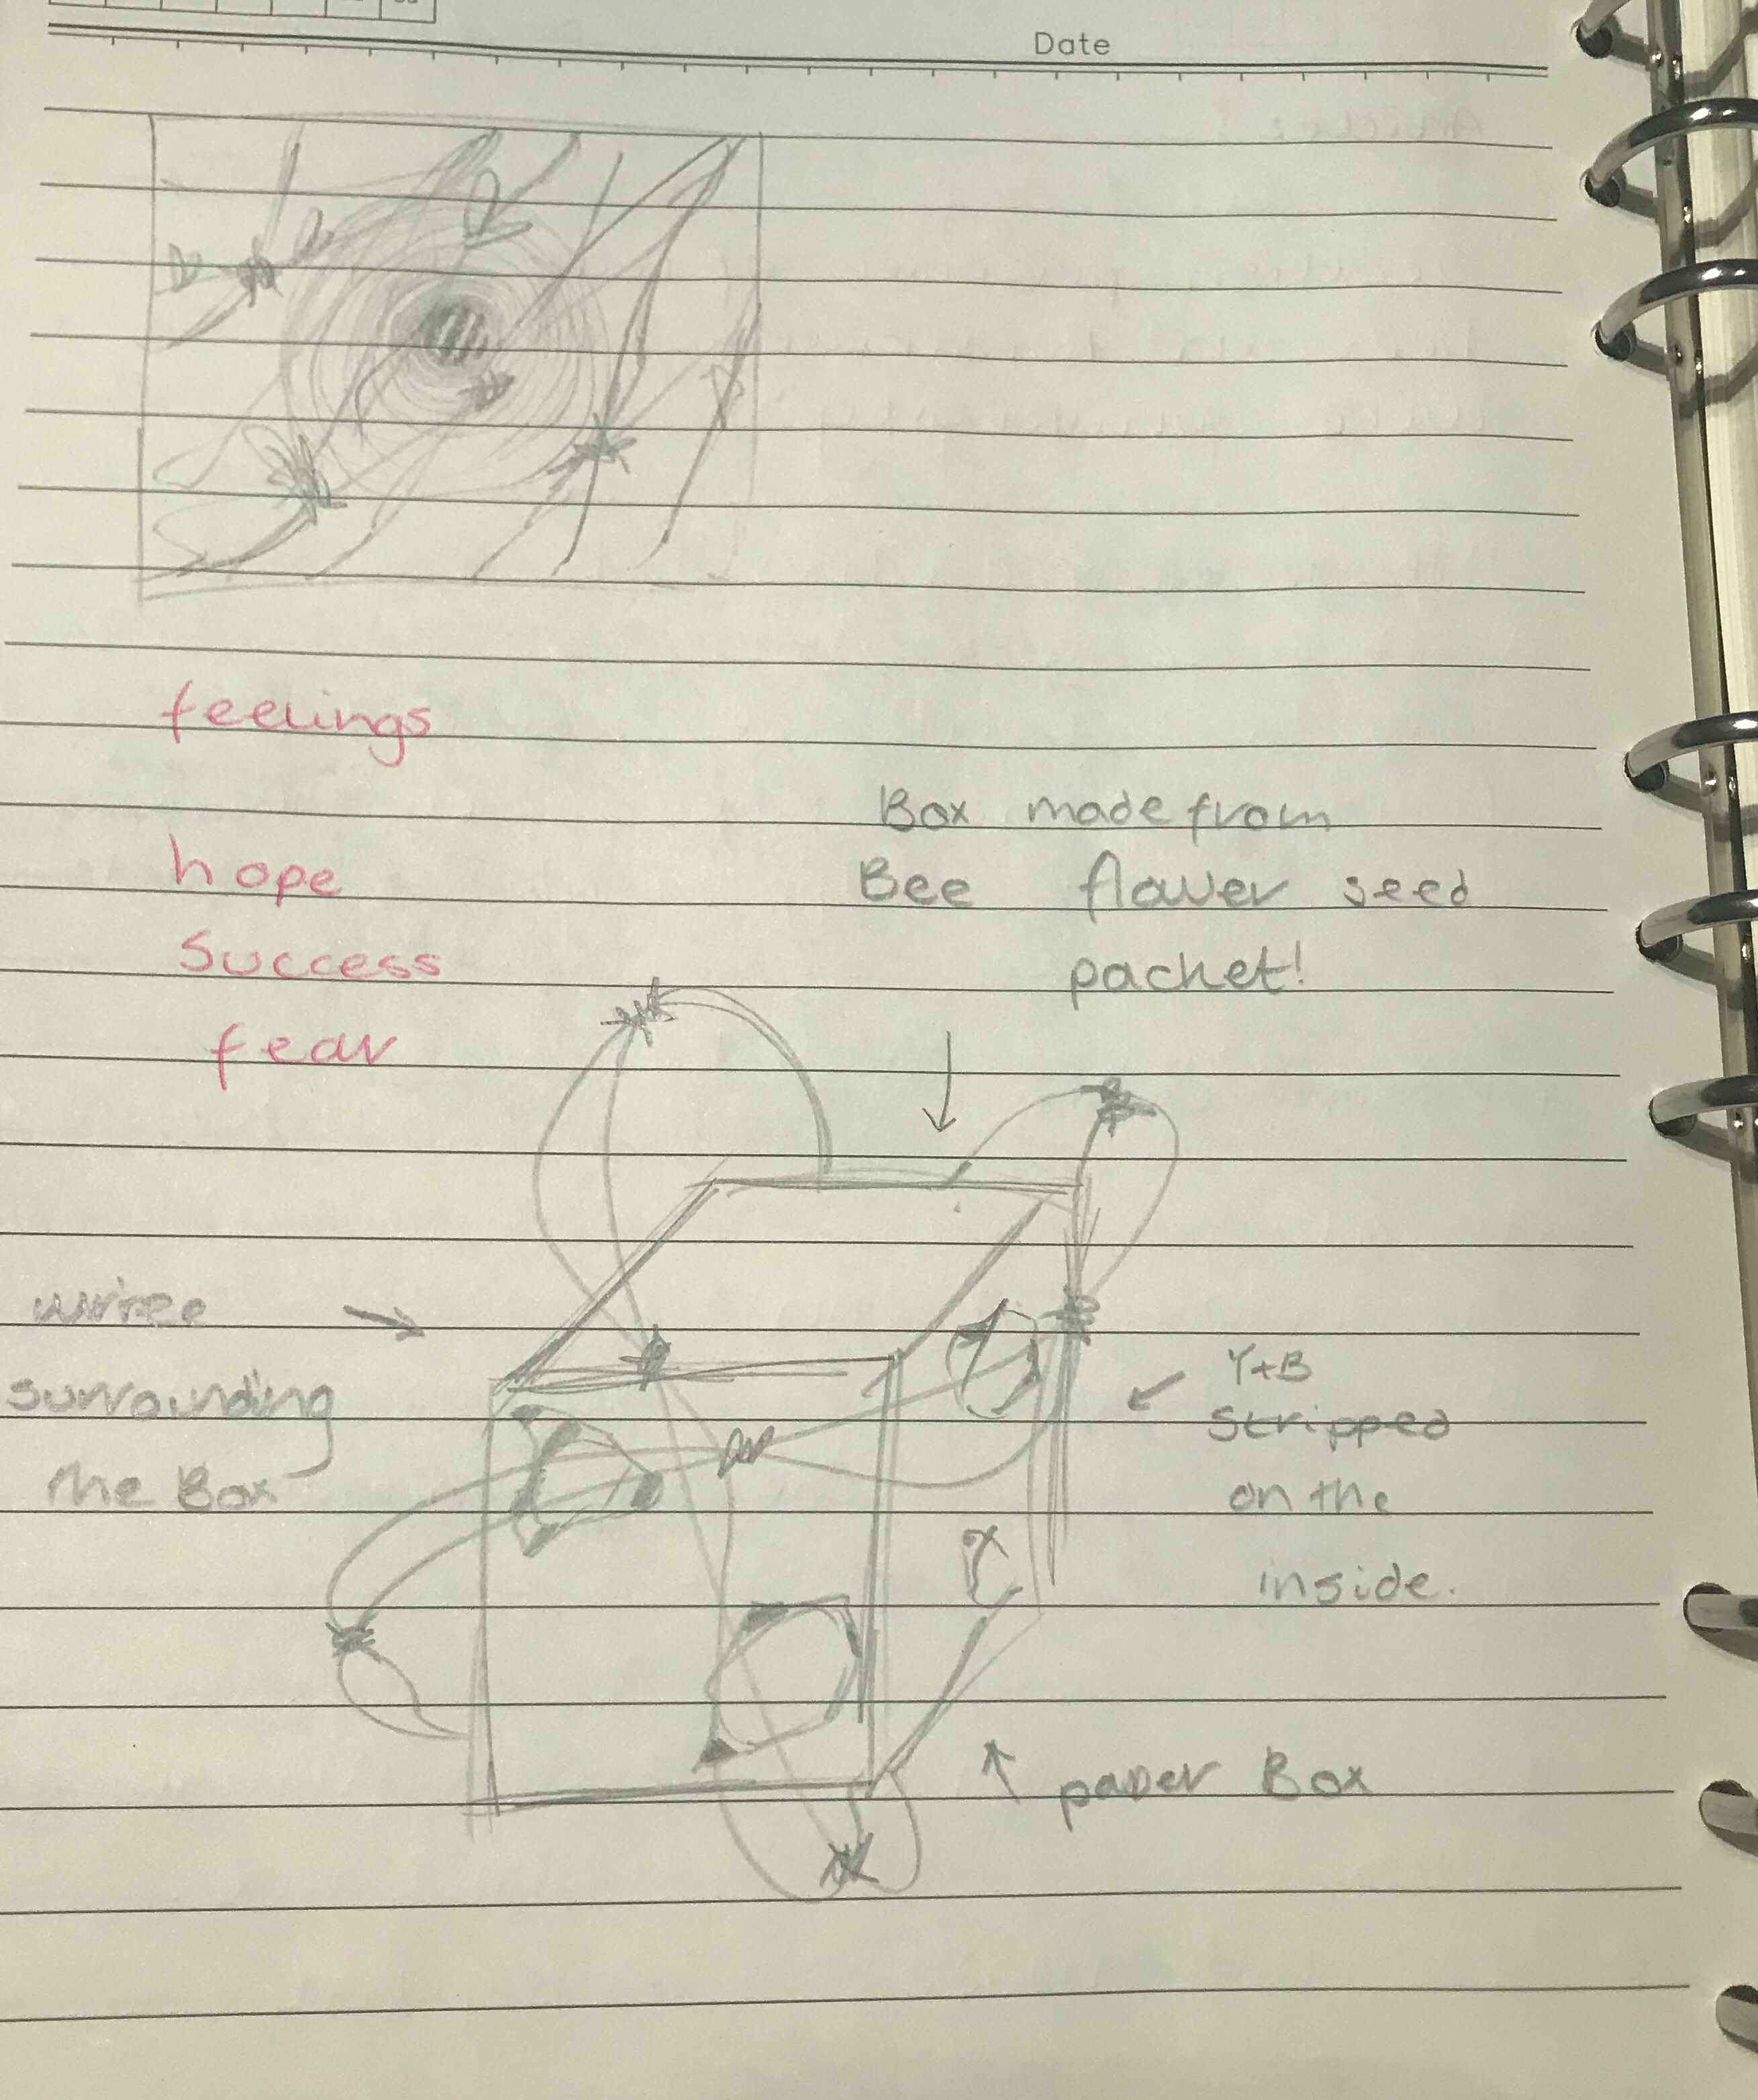 Date
feelings
hope
Success
fear
Box made from
Bee flower seed
packet!
surrounding
the Box
Y+B
Stripped
on the
inside.
paper Box